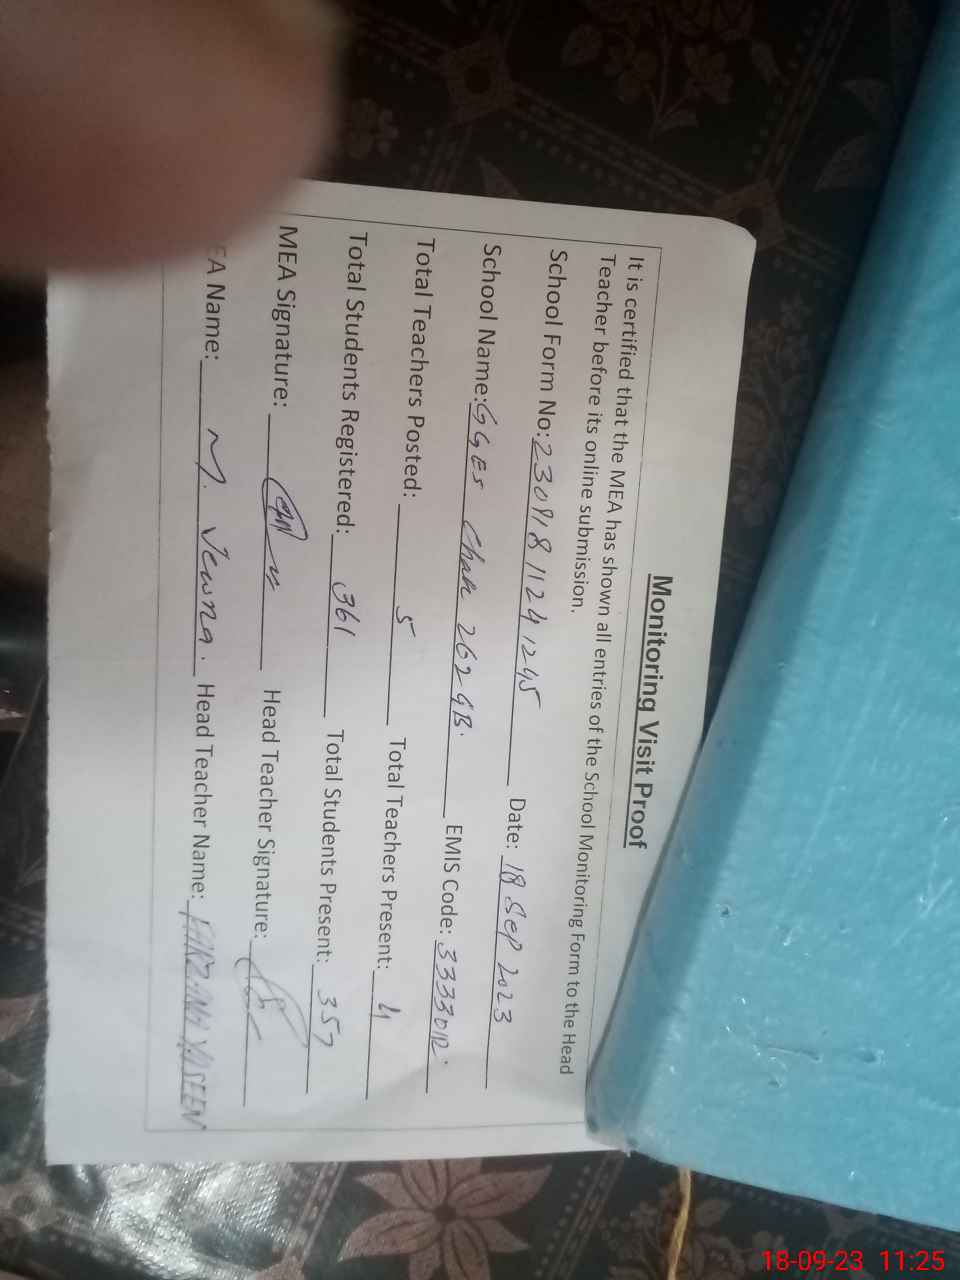 Monitoring Visit Proof
It is certified that the MEA has shown all entries of the School Monitoring Form to the Head
Teacher before its online submission.
School Form No: 23091811241245 Date: 18 Sep 2023
School Name: GGES Chak 262 GB. EMIS Code: 33330112
Total Teachers Posted: 5 Total Teachers Present: 4
Total Students Registered: 361 Total Students Present: 357
MEA Signature: Head Teacher Signature:
EA Name: M. Head Teacher Name: FARZANA YASEEN
18-09-23 11:25